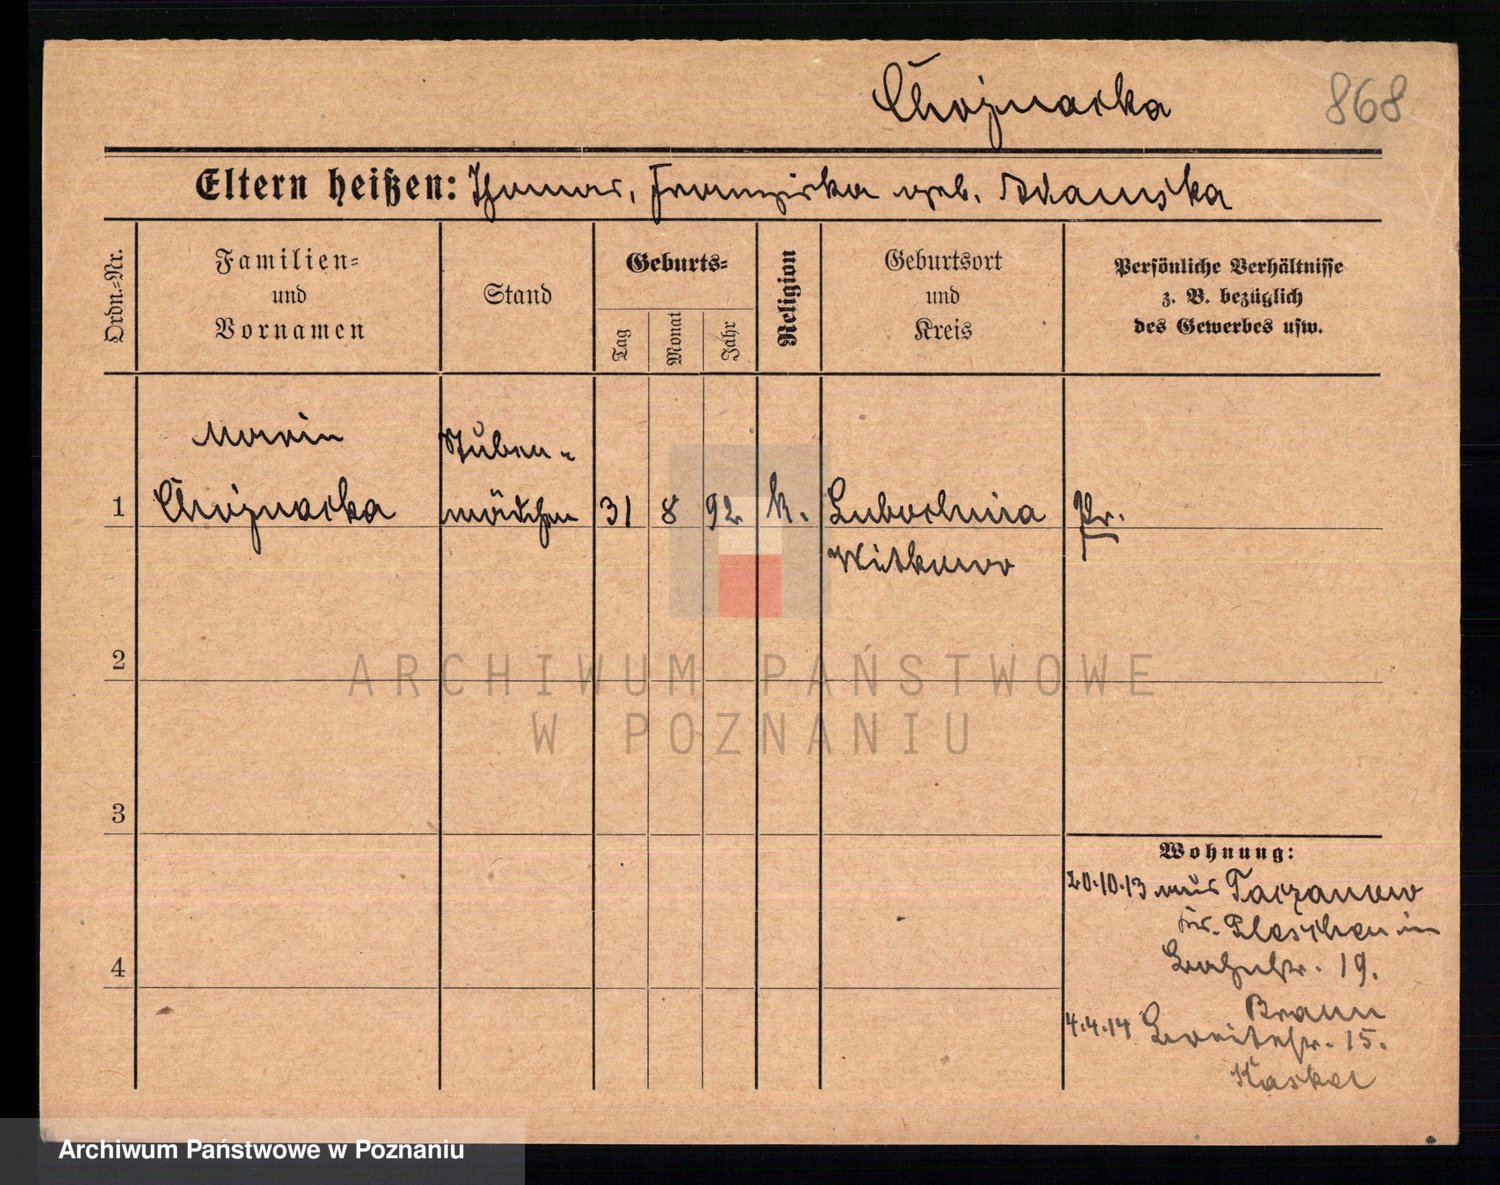 Chojnacka 868
Eltern heißen: Thomas, Franziska geb. Adamska
Ordn.-Nr.
Familien-
und
Vornamen
Stand
Geburts-
Tag
Monat
Jahr
Religion
Geburtsort
und
Kreis
Persönliche Verhältnisse
z. B. bezüglich
des Gewerbes usw.
Maria Stuben-
1 Chojnacka mädchen 31 8 92 k. Lubochnia Pr.
Witkowo
2
ARCHIWUM PAŃSTWOWE
W POZNANIU
3
Wohnung:
20.10.13 aus Taczanowo
Kr. Pleschen in
19.
4
Braun
4.4.14 Breitestr. 15.
Kaskel
Archiwum Państwowe w Poznaniu